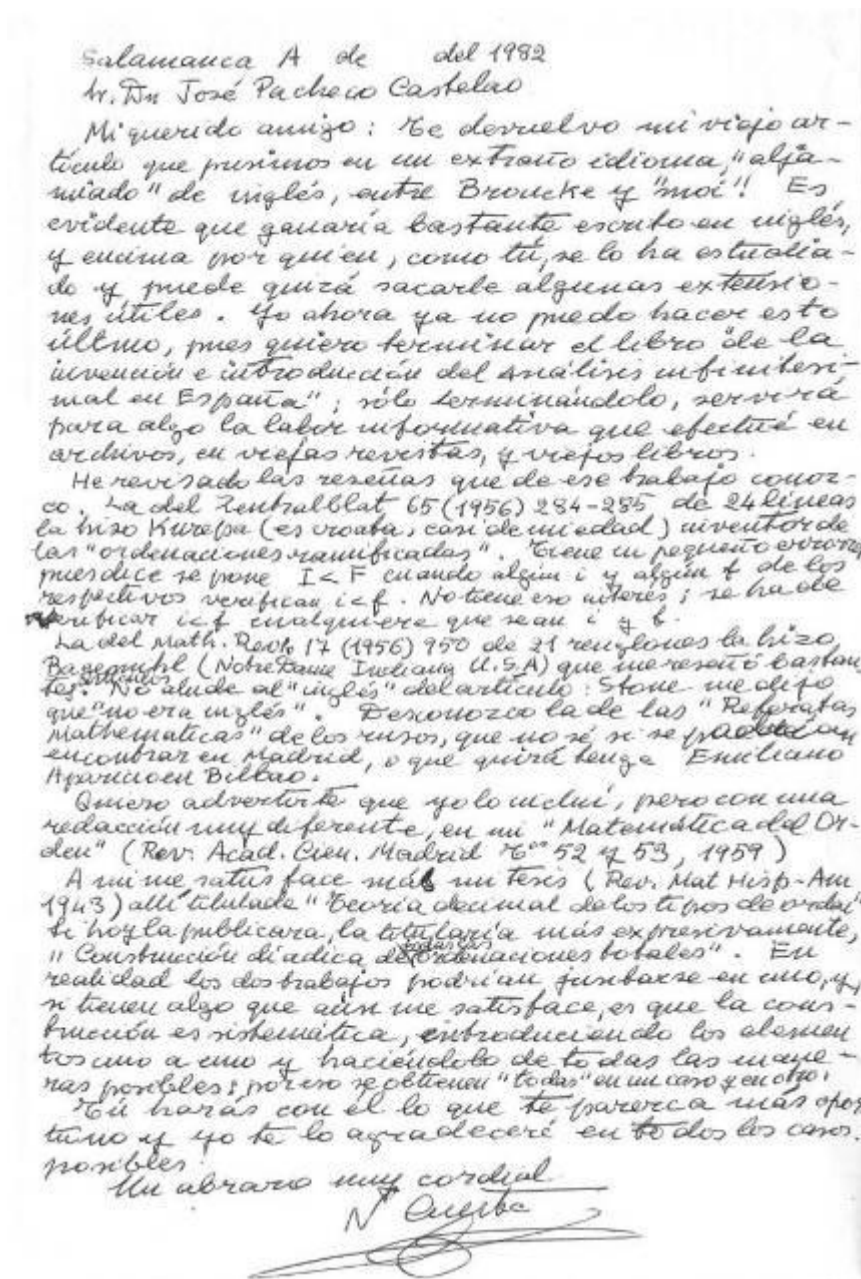 Salamanca A de del 1982
Sr. Dn José Pacheco Castelao
Mi querido amigo: Te devuelvo mi viejo ar-
tículo que pusimos en un extraño idioma, "alja-
miado" de inglés, entre Broucke y "moi"! Es
evidente que ganaría bastante escrito en inglés,
y encima por quien, como tú, se lo ha estudia-
do y puede quizá sacarle algunas extensio-
nes útiles. Yo ahora ya no puedo hacer esto
último, pues quiero terminar el libro "de la
invención e introducción del Análisis infinitesi-
mal en España"; sólo terminándolo, servirá
para algo la labor informativa que efectué en
archivos, en viejas revistas, y viejos libros.
He revisado las reseñas que de ese trabajo conoz-
co. La del Zentralblat 65 (1956) 284-285 de 24 líneas
la hizo Kurepa (es croata, casi de mi edad) inventor de
las "ordenaciones ramificadas". Tiene un pequeño error,
pues dice se pone I < F cuando algún i y algún f de los
respectivos verifican i<f. No tiene eso interés; se ha de
verificar i<f cualquiera que sean i y f.
La del Math. Rev. 17 (1956) 950 de 21 renglones la hizo
Bagemihl (Notre Dame Indiana U.S.A) que me reseñó bastan-
tes artículos. No alude al "inglés" del artículo: Stone me dijo
que "no era inglés". Desconozco la de las "Referatas
Mathematicas" de los rusos, que no sé si se podrían
encontrar en Madrid, o que quizá tenga Emiliano
Aparicio en Bilbao.
Quiero advertirte que yo lo incluí, pero con una
redacción muy diferente, en mi "Matemática del Or-
den" (Rev. Acad. Cien. Madrid Tos 52 y 53, 1959)
A mi me satisface más mi tesis (Rev. Mat Hisp-Am
1943) allí titulada "Teoría decimal de los tipos de orden"
Si hoy la publicara, la titularía más expresivamente,
"Construcción diadica de todas las ordenaciones totales". En
realidad los dos trabajos podrían juntarse en uno, y
si tienen algo que aún me satisface, es que la cons-
trucción es sistemática, introduciendo los elemen
tos uno a uno y haciéndolo de todas las mane-
ras posibles; por eso se obtienen "todas" en un caso y en otro.
Tú harás con él lo que te parezca más opor
tuno y yo te lo agradeceré en todos los casos
posibles.
Un abrazo muy cordial
N Cuesta